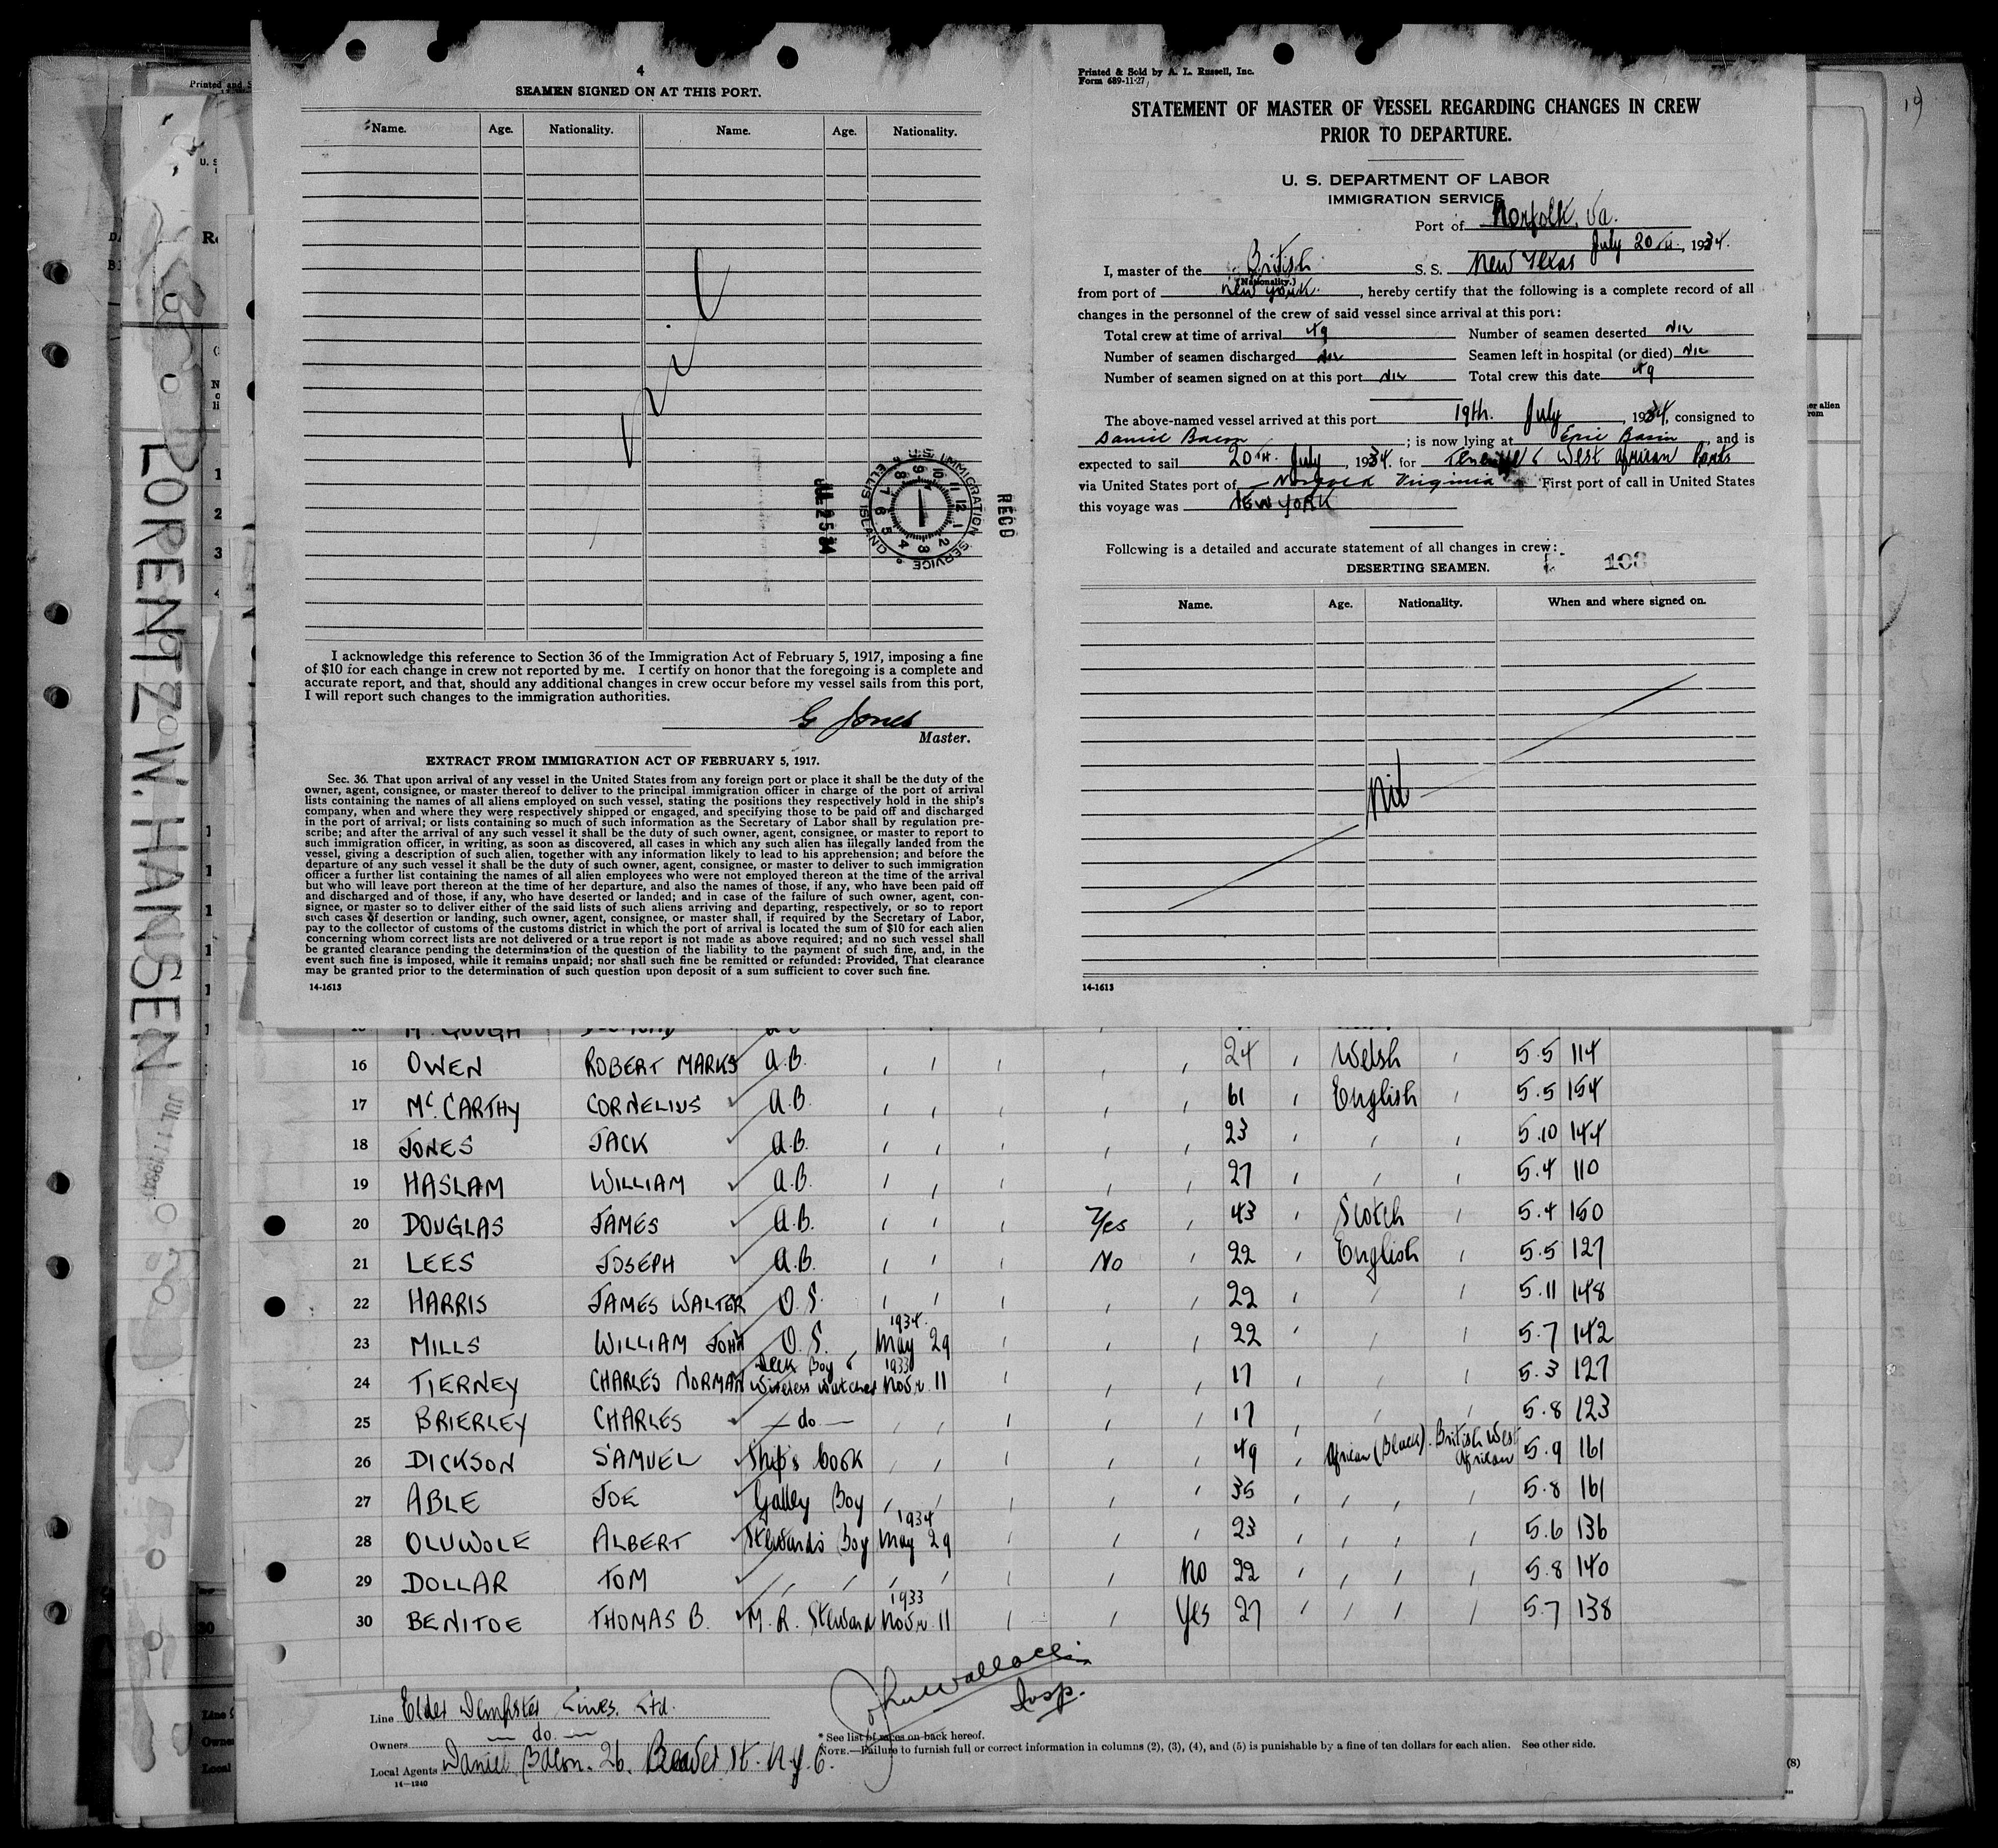 4
SEAMEN SIGNED ON AT THIS PORT.
Name. Age. Nationality. Name. Age. Nationality.
Nil
JUL 25 34
U.S. IMMIGRATION SERVICE
ELLIS ISLAND
RECD
I acknowledge this reference to Section 36 of the Immigration Act of February 5, 1917, imposing a fine
of $10 for each change in crew not reported by me. I certify on honor that the foregoing is a complete and
accurate report, and that, should any additional changes in crew occur before my vessel sails from this port,
I will report such changes to the immigration authorities.
G Jones
Master.
EXTRACT FROM IMMIGRATION ACT OF FEBRUARY 5, 1917.
Sec. 36. That upon arrival of any vessel in the United States from any foreign port or place it shall be the duty of the
owner, agent, consignee, or master thereof to deliver to the principal immigration officer in charge of the port of arrival
lists containing the names of all aliens employed on such vessel, stating the positions they respectively hold in the ship's
company, when and where they were respectively shipped or engaged, and specifying those to be paid off and discharged
in the port of arrival; or lists containing so much of such information as the Secretary of Labor shall by regulation pre-
scribe; and after the arrival of any such vessel it shall be the duty of such owner, agent, consignee, or master to report to
such immigration officer, in writing, as soon as discovered, all cases in which any such alien has illegally landed from the
vessel, giving a description of such alien, together with any information likely to lead to his apprehension; and before the
departure of any such vessel it shall be the duty of such owner, agent, consignee, or master to deliver to such immigration
officer a further list containing the names of all alien employees who were not employed thereon at the time of the arrival
but who will leave port thereon at the time of her departure, and also the names of those, if any, who have been paid off
and discharged and of those, if any, who have deserted or landed; and in case of the failure of such owner, agent, con-
signee, or master so to deliver either of the said lists of such aliens arriving and departing, respectively, or so to report
such cases of desertion or landing, such owner, agent, consignee, or master shall, if required by the Secretary of Labor,
pay to the collector of customs of the customs district in which the port of arrival is located the sum of $10 for each alien
concerning whom correct lists are not delivered or a true report is not made as above required; and no such vessel shall
be granted clearance pending the determination of the question of the liability to the payment of such fine, and, in the
event such fine is imposed, while it remains unpaid; nor shall such fine be remitted or refunded: Provided, That clearance
may be granted prior to the determination of such question upon deposit of a sum sufficient to cover such fine.
14-1613
Printed & Sold by A. L. Russell, Inc.
Form 689-11-27
STATEMENT OF MASTER OF VESSEL REGARDING CHANGES IN CREW
PRIOR TO DEPARTURE.
U. S. DEPARTMENT OF LABOR
IMMIGRATION SERVICE
Port of Norfolk, Va.
July 20th, 1934.
I, master of the British S. S. New Texas
(Nationality.)
from port of New York, hereby certify that the following is a complete record of all
changes in the personnel of the crew of said vessel since arrival at this port:
Total crew at time of arrival 49 Number of seamen deserted Nil
Number of seamen discharged Nil Seamen left in hospital (or died) Nil
Number of seamen signed on at this port Nil Total crew this date 49
The above-named vessel arrived at this port 19th. July, 1934, consigned to
Daniel Bacon; is now lying at Erie Basin, and is
expected to sail 20th. July, 1934. for Teneriffe & West African Ports
via United States port of Norfolk Virginia First port of call in United States
this voyage was NEW YORK
Following is a detailed and accurate statement of all changes in crew:
103
DESERTING SEAMEN.
Name. Age. Nationality. When and where signed on.
Nil
14-1613
16 OWEN ROBERT MARKS A.B. " " " " " 24 " Welsh " 5.5 114
17 McCARTHY CORNELIUS A.B. " " " " " 61 " English " 5.5 154
18 JONES JACK A.B. " " " " " 23 " " " 5.10 144
19 HASLAM WILLIAM A.B. " " " " " 27 " " " 5.4 110
20 DOUGLAS JAMES A.B. " " " Yes " 43 " Scotch " 5.4 150
21 LEES JOSEPH A.B. " " " No " 22 " English " 5.5 127
22 HARRIS JAMES WALTER O.S. " " " " " 22 " " " 5.11 148
23 MILLS WILLIAM JOHN O.S. 1934. May 29 " " " 22 " " " 5.7 142
24 TIERNEY CHARLES NORMAN Deck Boy & Wireless Watcher 1933 Novr 11 " " " 17 " " " 5.3 127
25 BRIERLEY CHARLES — do — " " " " " 17 " " " 5.8 123
26 DICKSON SAMUEL Ship's Cook " " " " " 49 " African (Black). British West African 5.9 161
27 ABLE JOE Galley Boy " " " " " 35 " " " " 5.8 161
28 OLUWOLE ALBERT Steward's Boy 1934 May 29 " " " 23 " " " " 5.6 136
29 DOLLAR TOM " " " " " " No 22 " " " " 5.8 140
30 BENITOE THOMAS B. M. R. Steward 1933 Novr 11 " " Yes 27 " " " " 5.7 138
Line Elder Dempster Lines. Ltd.
Owners — do. —
Local Agents Daniel Bacon. 26. Beaver St. N.Y.C.
14—1240
Insp.
* See list of races on back hereof.
NOTE.—Failure to furnish full or correct information in columns (2), (3), (4), and (5) is punishable by a fine of ten dollars for each alien. See other side.
LORENTZ W. HANSEN
Printed and
19
(8)